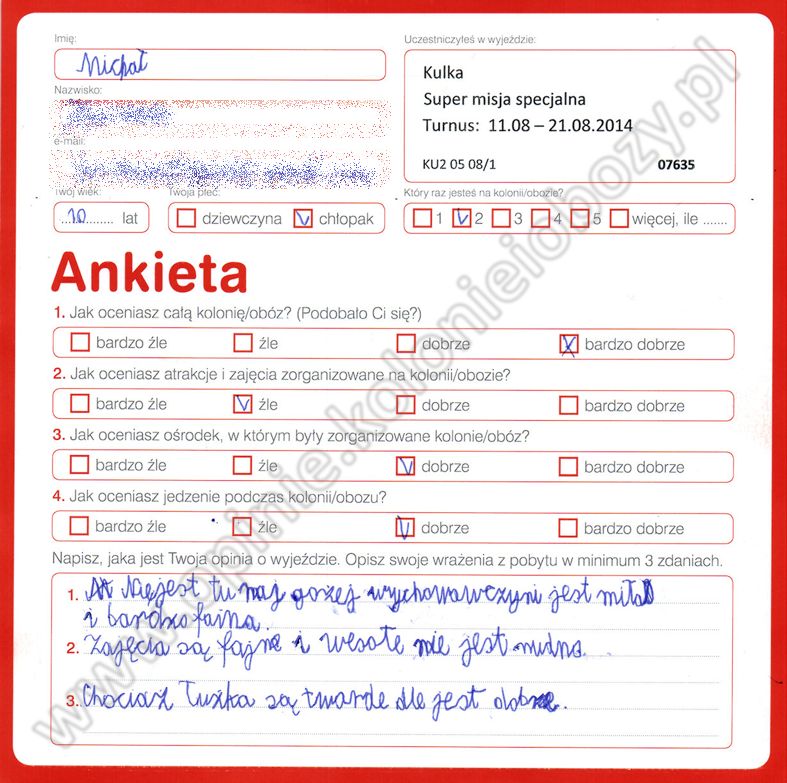 Imię:
Michał
Uczestniczyłeś w wyjeździe:
Kulka
Super misja specjalna
Turnus: 11.08 – 21.08.2014
KU2 05 08/1 07635
Nazwisko:
e-mail:
Twój wiek:
10 lat
Twoja płeć:
dziewczyna chłopak
Który raz jesteś na kolonii/obozie?
1 2 3 4 5 więcej, ile .......
Ankieta
1. Jak oceniasz całą kolonię/obóz? (Podobalo Ci się?)
bardzo źle źle dobrze bardzo dobrze
2. Jak oceniasz atrakcje i zajęcia zorganizowane na kolonii/obozie?
bardzo źle źle dobrze bardzo dobrze
3. Jak oceniasz ośrodek, w którym były zorganizowane kolonie/obóz?
bardzo źle źle dobrze bardzo dobrze
4. Jak oceniasz jedzenie podczas kolonii/obozu?
bardzo źle źle dobrze bardzo dobrze
Napisz, jaka jest Twoja opinia o wyjeździe. Opisz swoje wrażenia z pobytu w minimum 3 zdaniach.
1. jest tu naj gorzej wychowawczyni jest miła
i bardzo fajna.
2. Zajęcia są fajne i wesołe nie jest nudno.
3. Chociaż łużka są twarde ale jest dobrze.
www.opinie.kolonieiobozy.pl